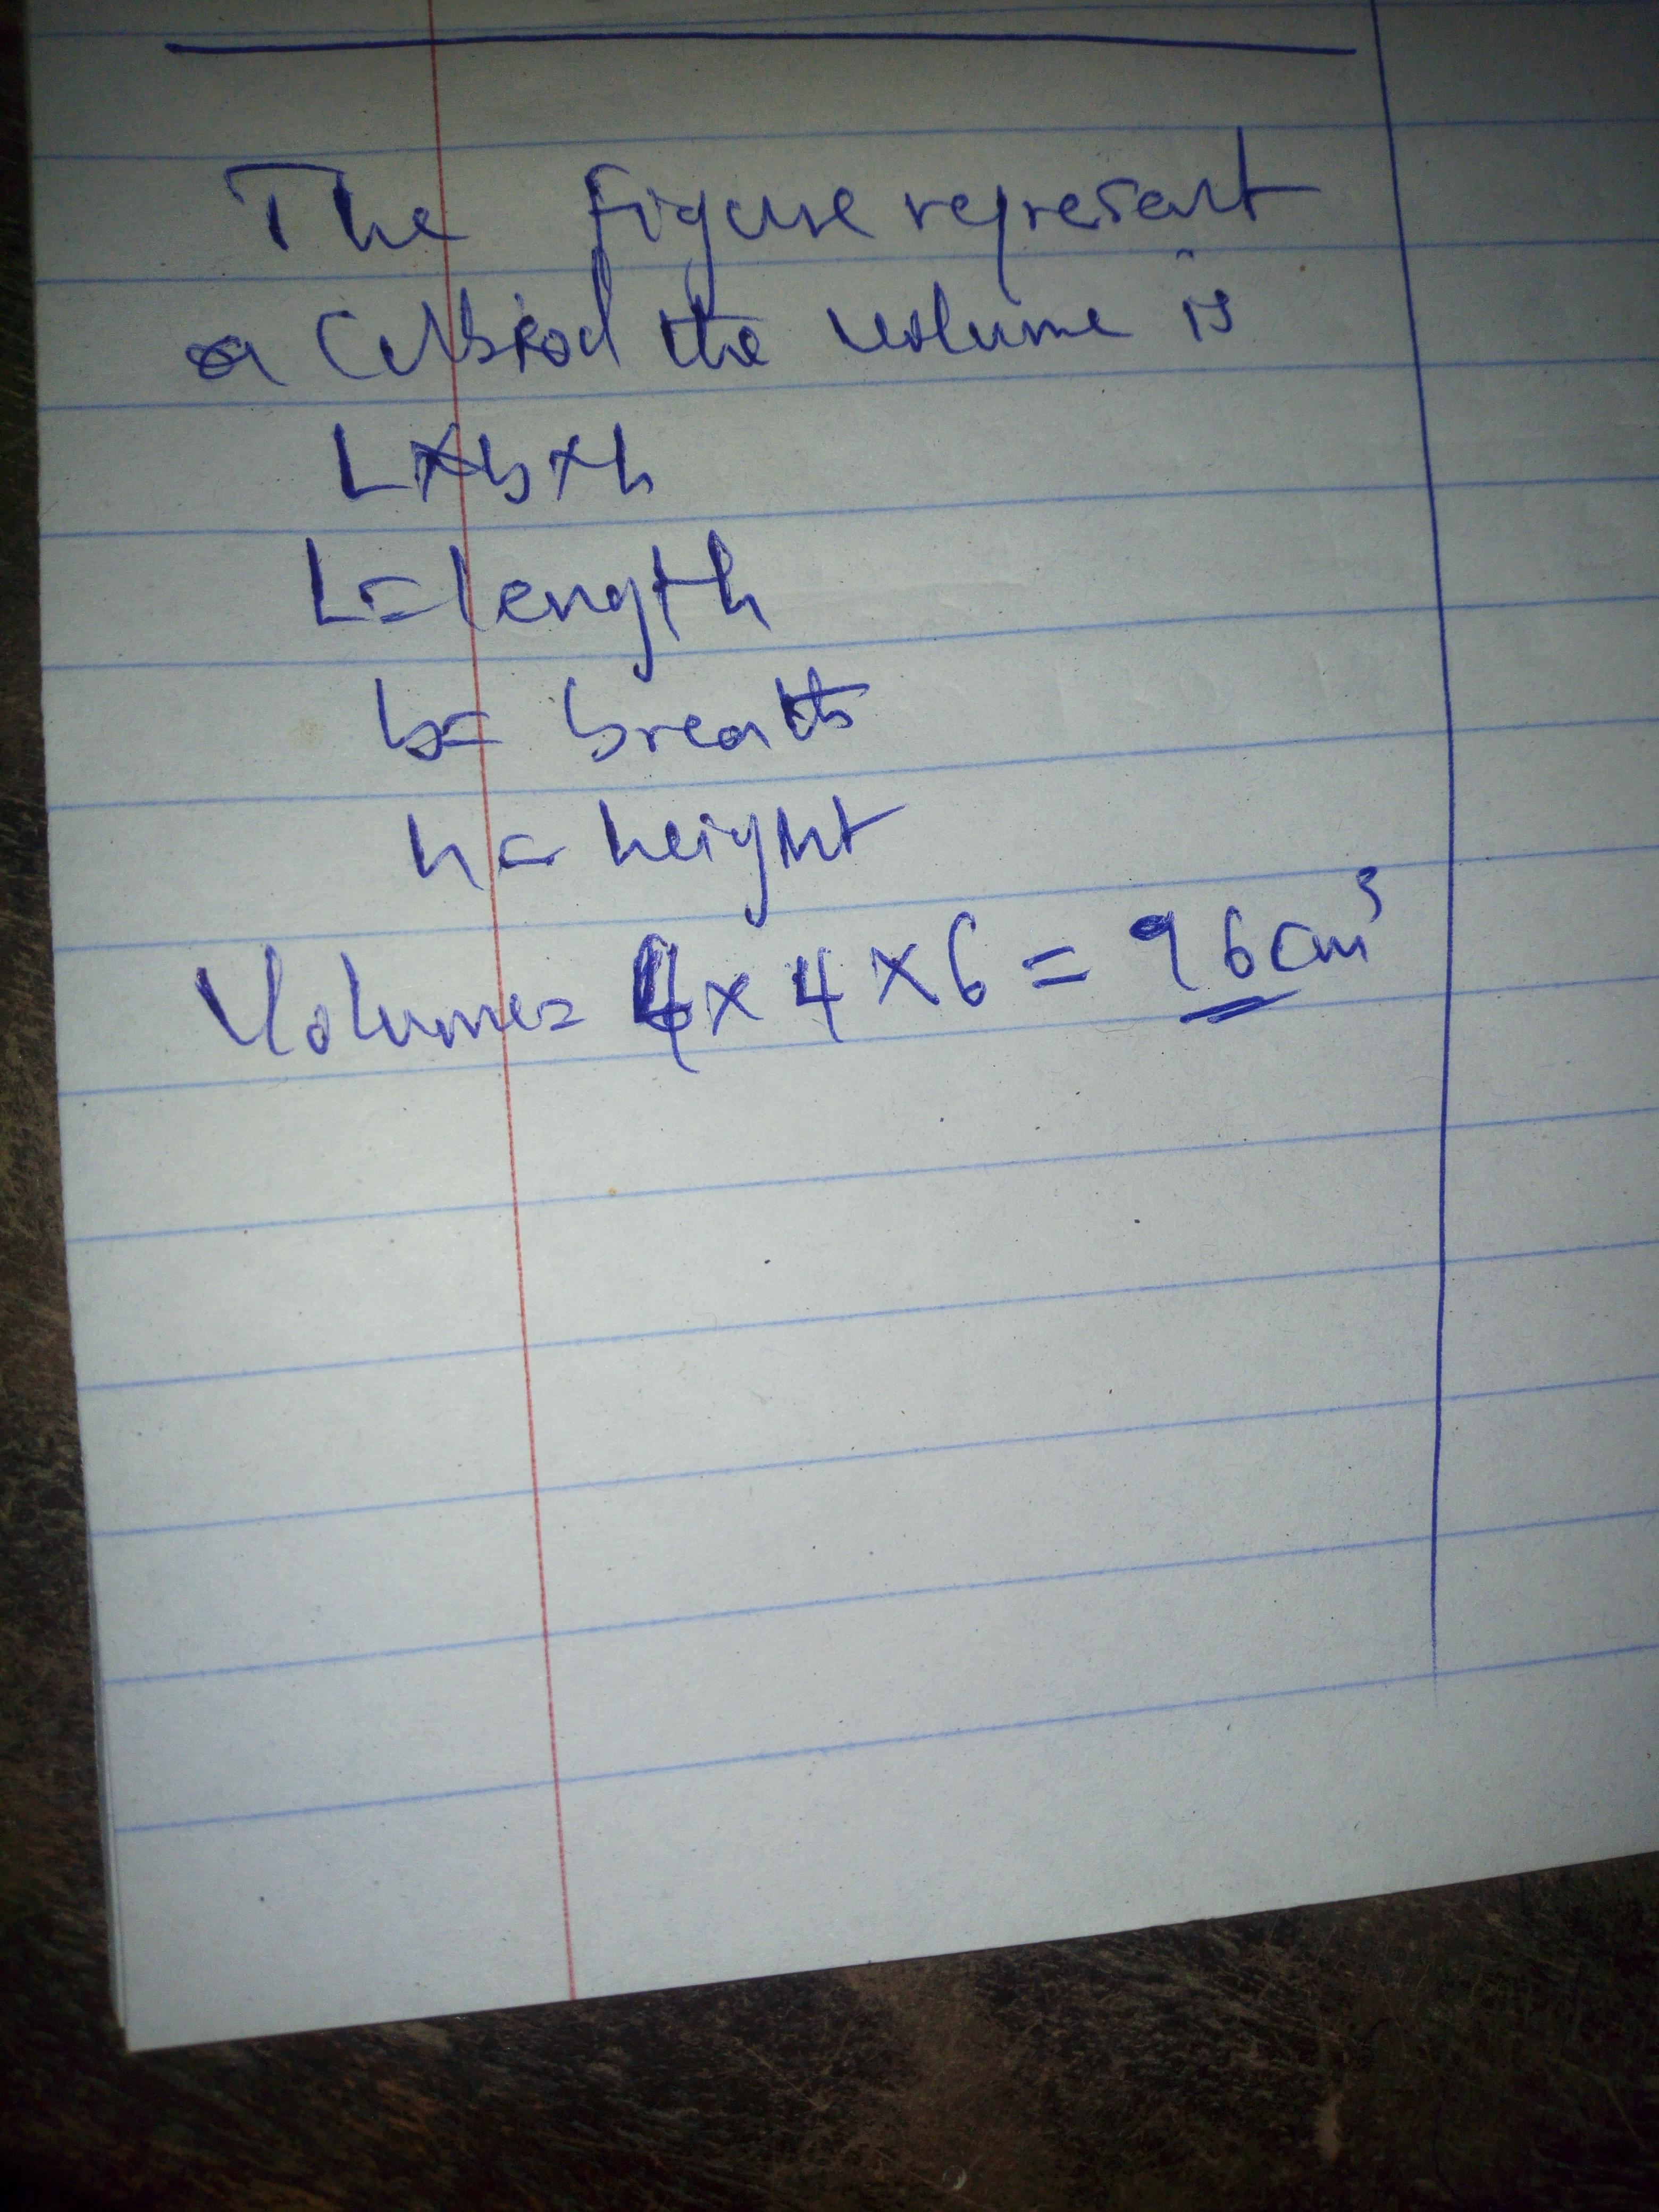 The figure represent
a Cubiod the volume is
L×b×h
L=length
b= breath
h= height
Volume= 4× 4 ×6 = 96cm³